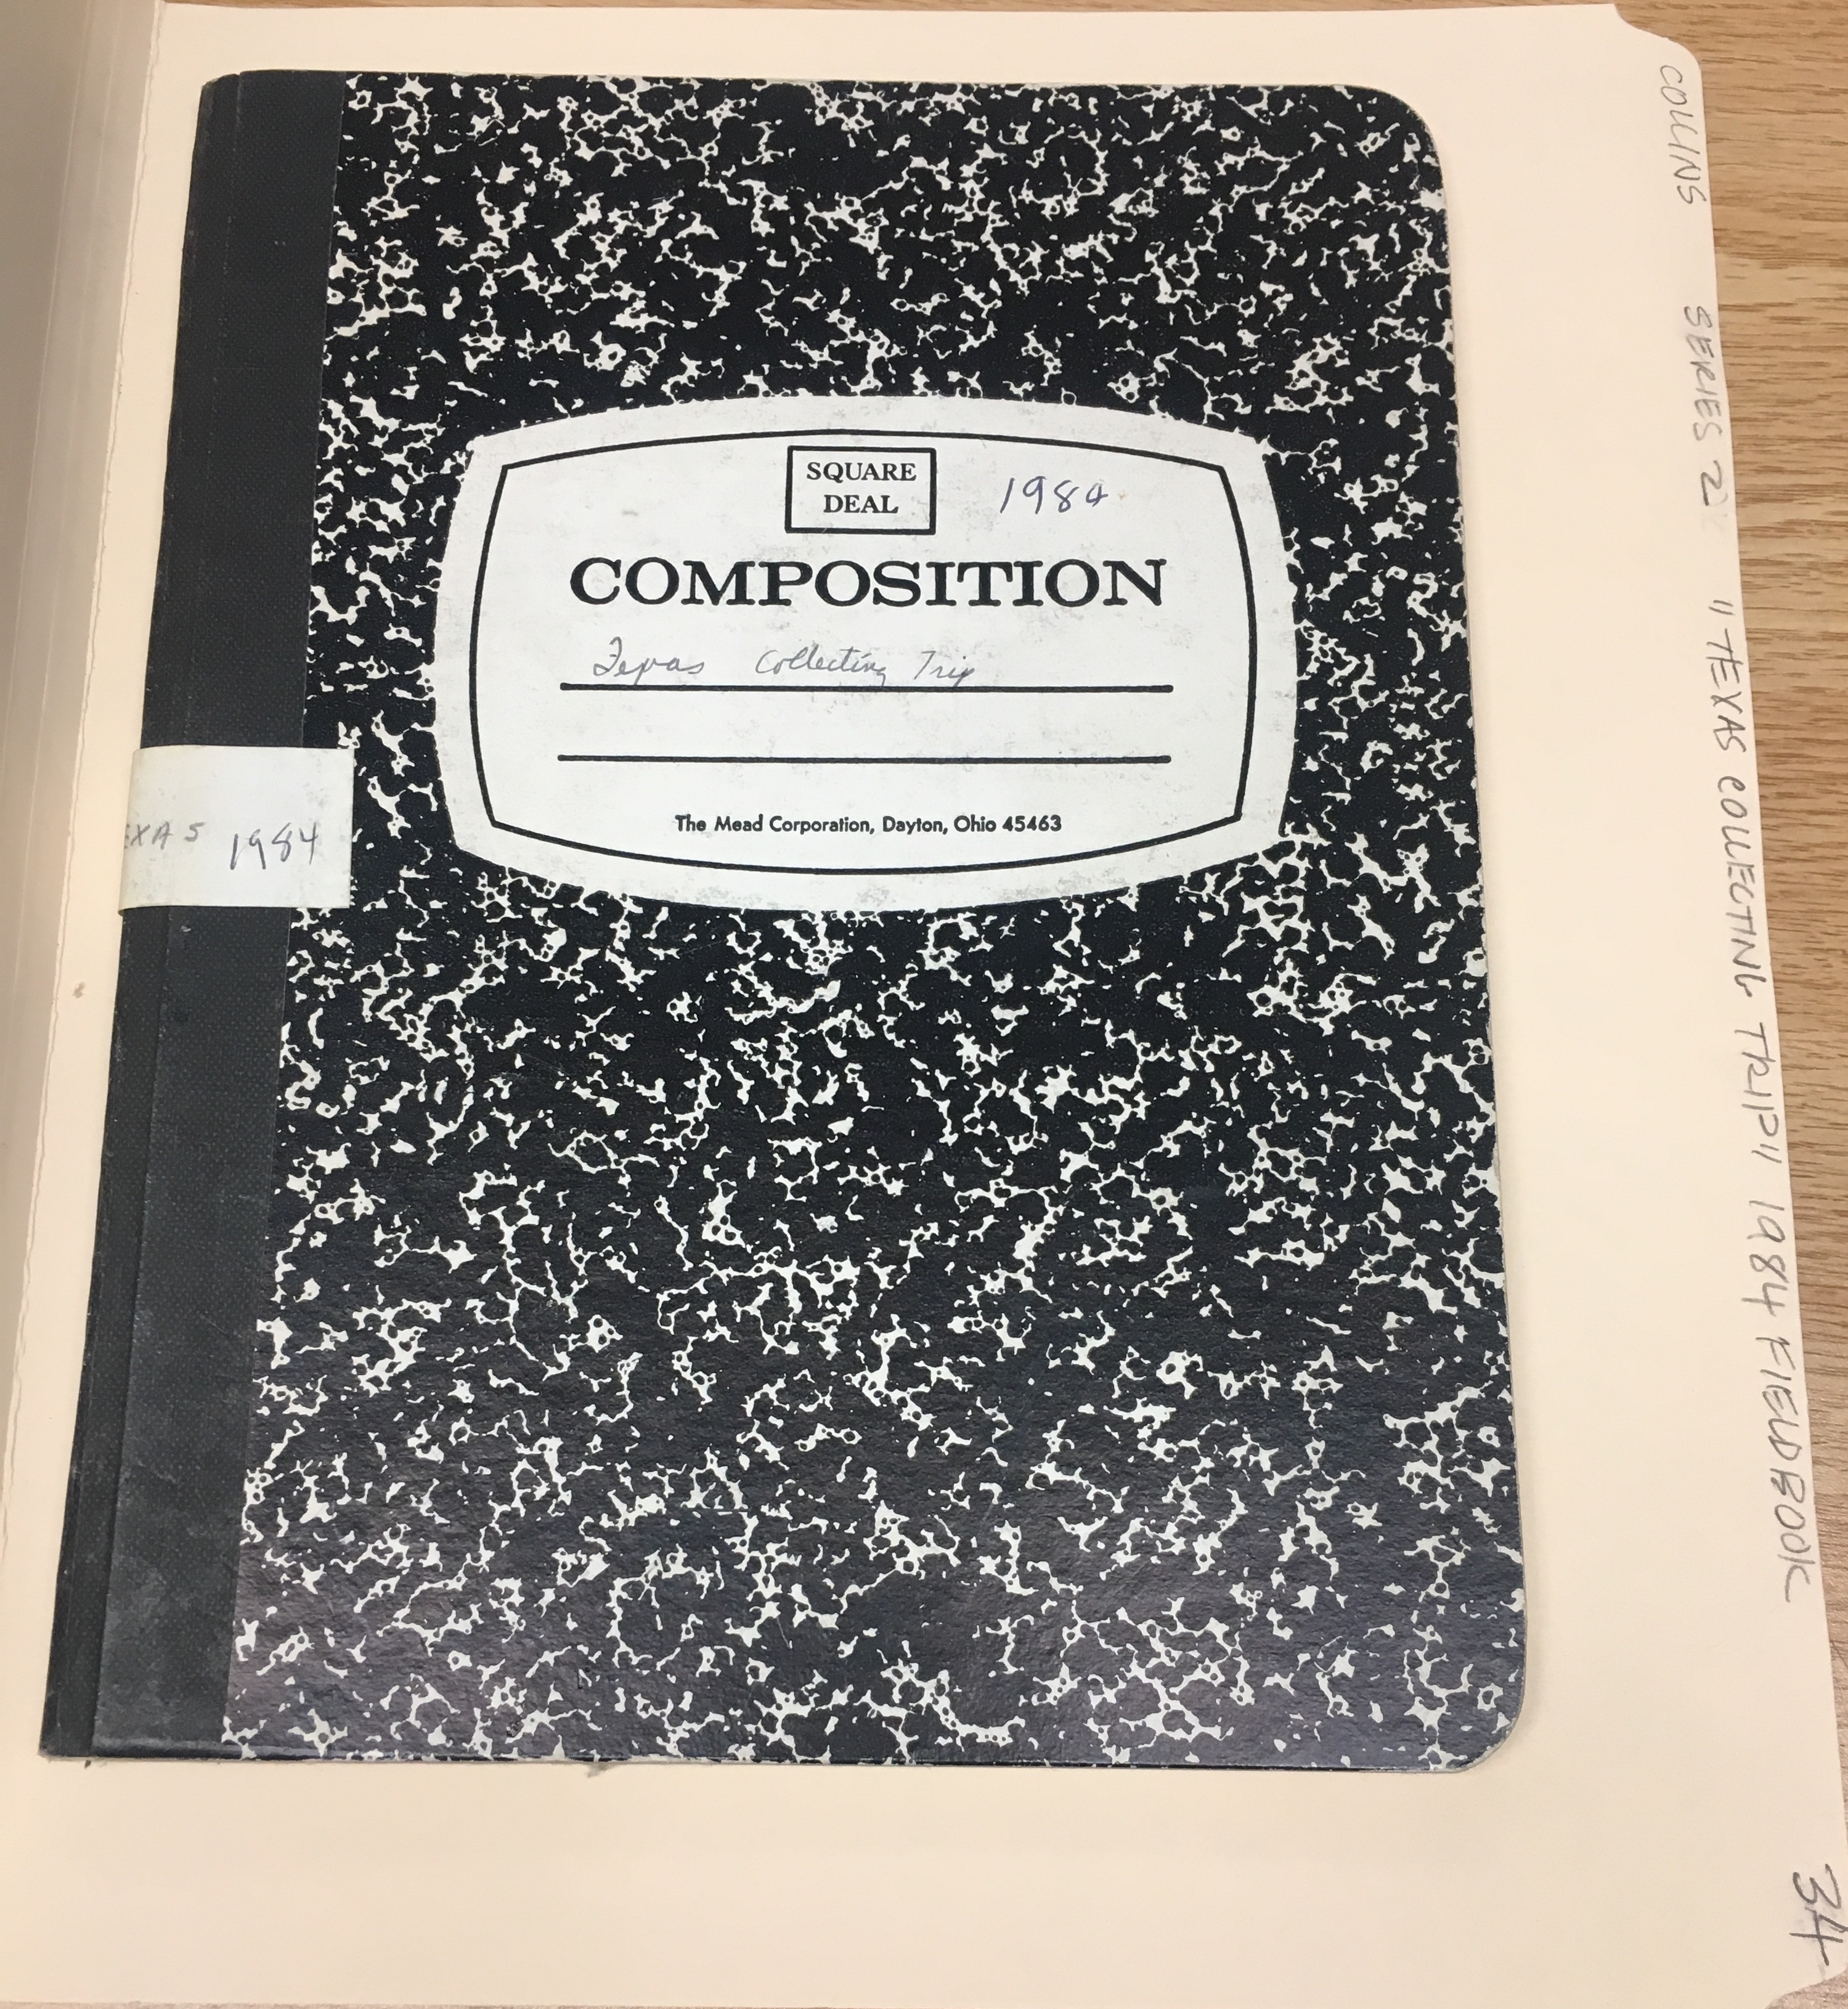 SQUARE
DEAL
1984
COMPOSITION
Texas Collecting Trip
The Mead Corporation, Dayton, Ohio 45463
EXAS 1984
COLLINS SERIES 2 "TEXAS COLLECTING TRIP" 1984 FIELDBOOK 34